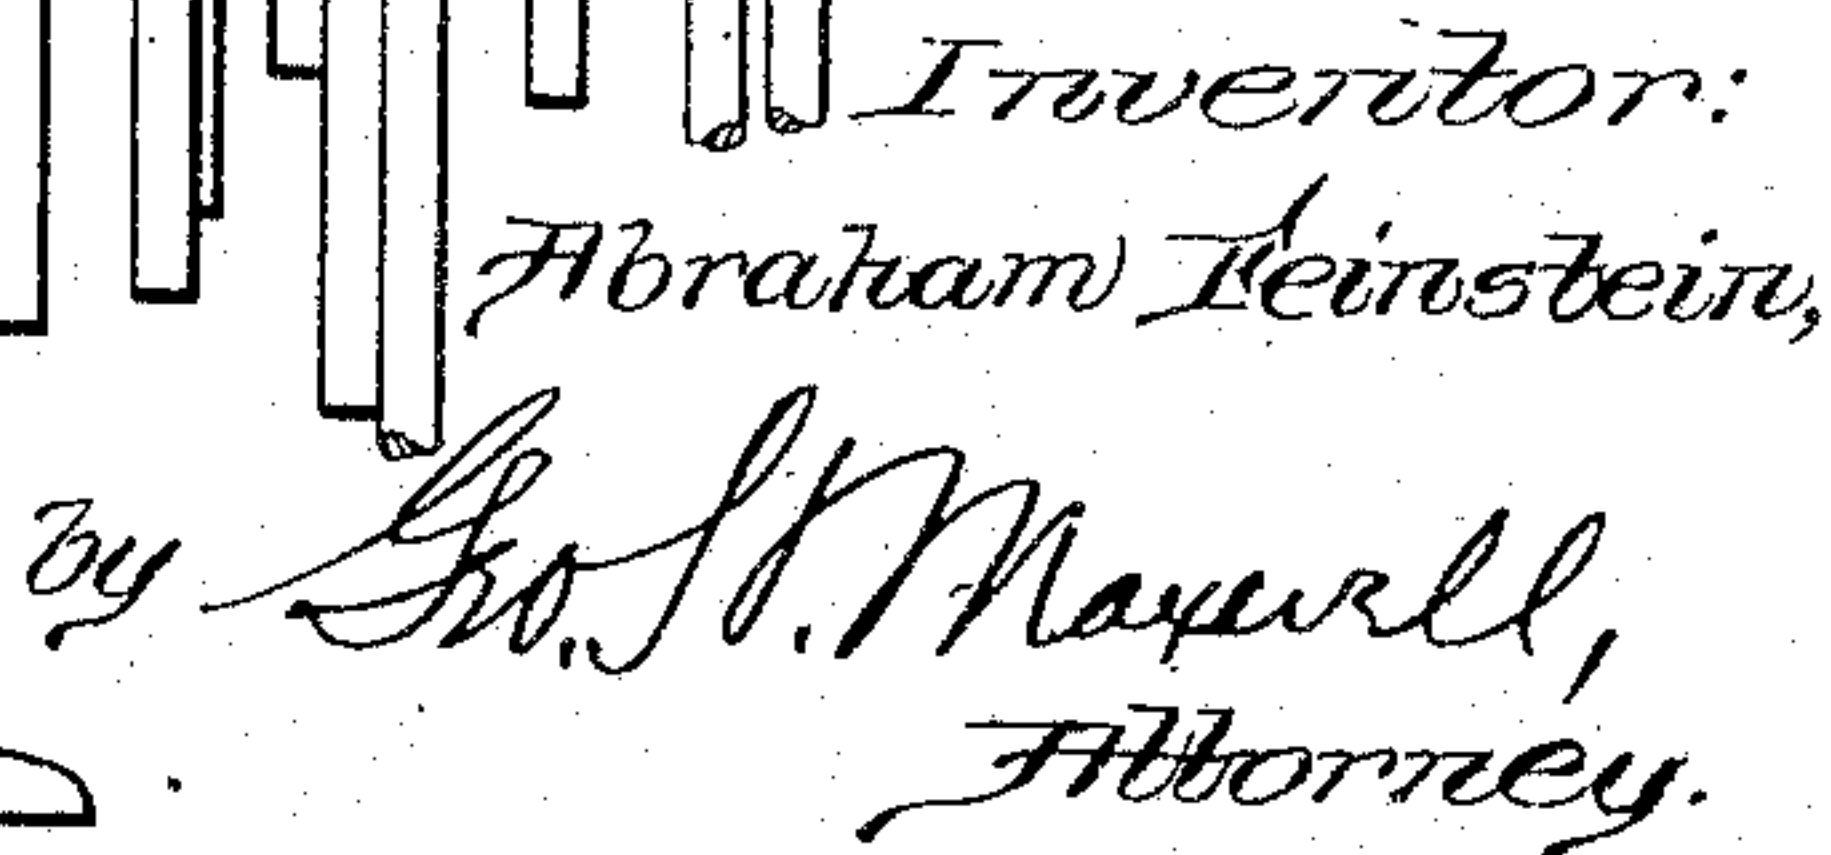 Inventor:
Abraham Feinstein,
by Geo. S. Maxwell,
Attorney.